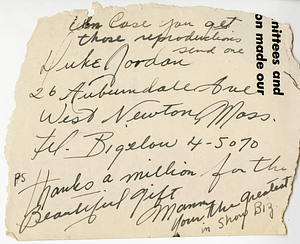 in Case you get
those reproductions
send one
Duke Jordan
26 Auburndale Ave
West Newton, Mass.
Tel. Bigelow 4-5070
PS
Thanks a million for the
Beautiful Gift
Manny
your the Greatest
in Show Biz.
mittees and
on made our